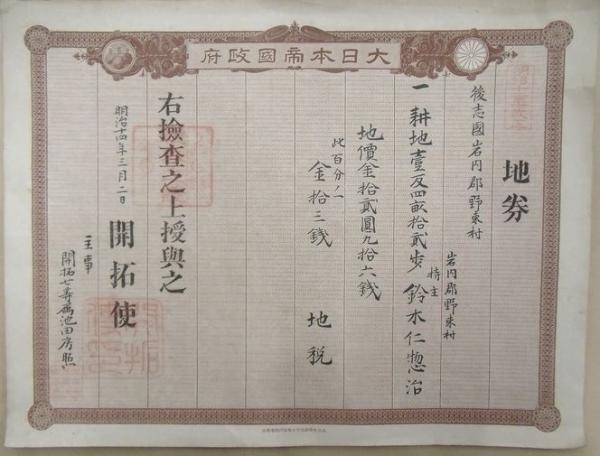 大日本帝國政府
地券
後志國岩内郡野束村
一耕地壹反四畝拾貳歩
岩内郡野束村
持主 鈴木仁惣治
地價金拾貳圓九拾六錢
此百分ノ一
金拾三錢 地税
右撿査之上授與之
明治十四年三月二日 開拓使
主事
開拓七等属池田房照